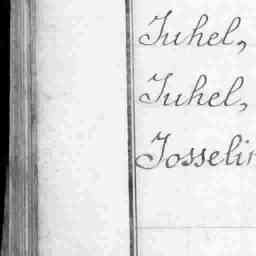 Juhel,
Juhel,
Josselin